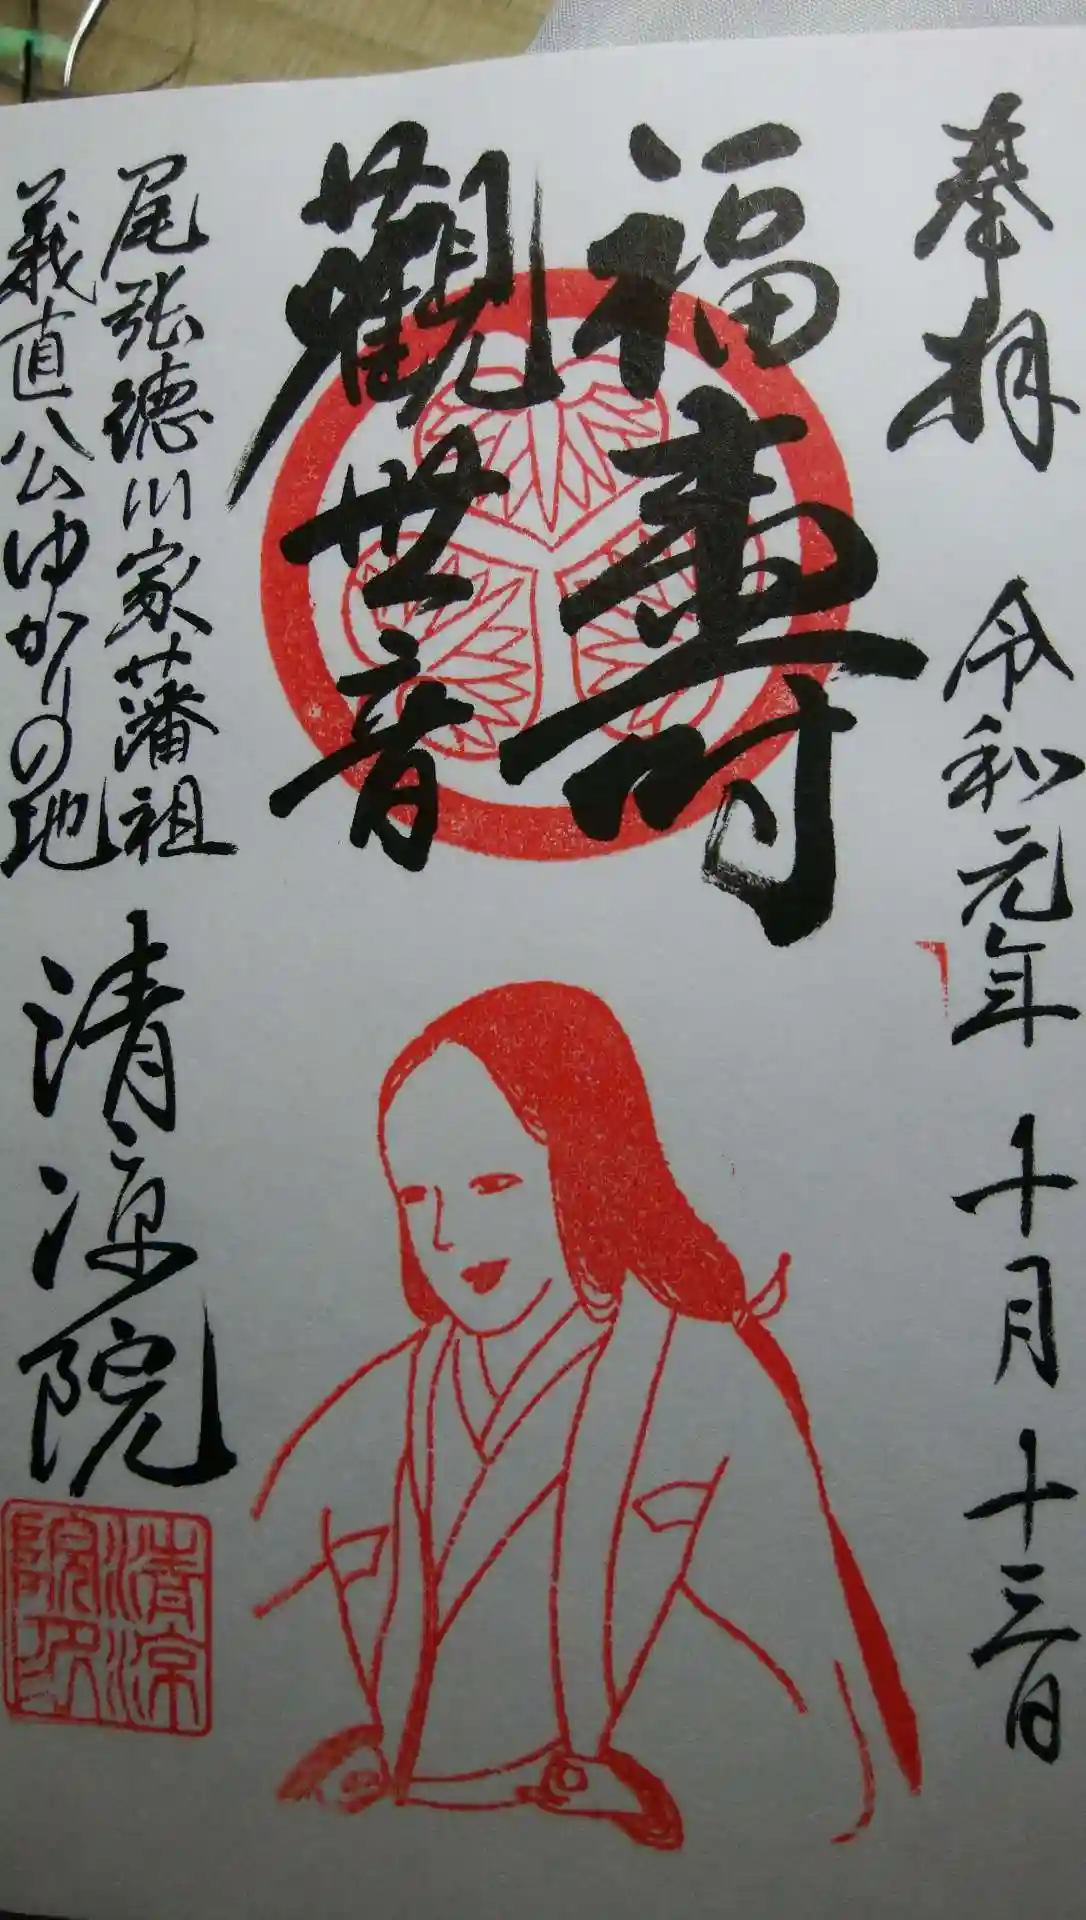 奉拝 令和元年 十月 十三日
福壽
觀世音
尾張徳川家藩祖
義直公ゆかりの地
清凉院
清涼
院印